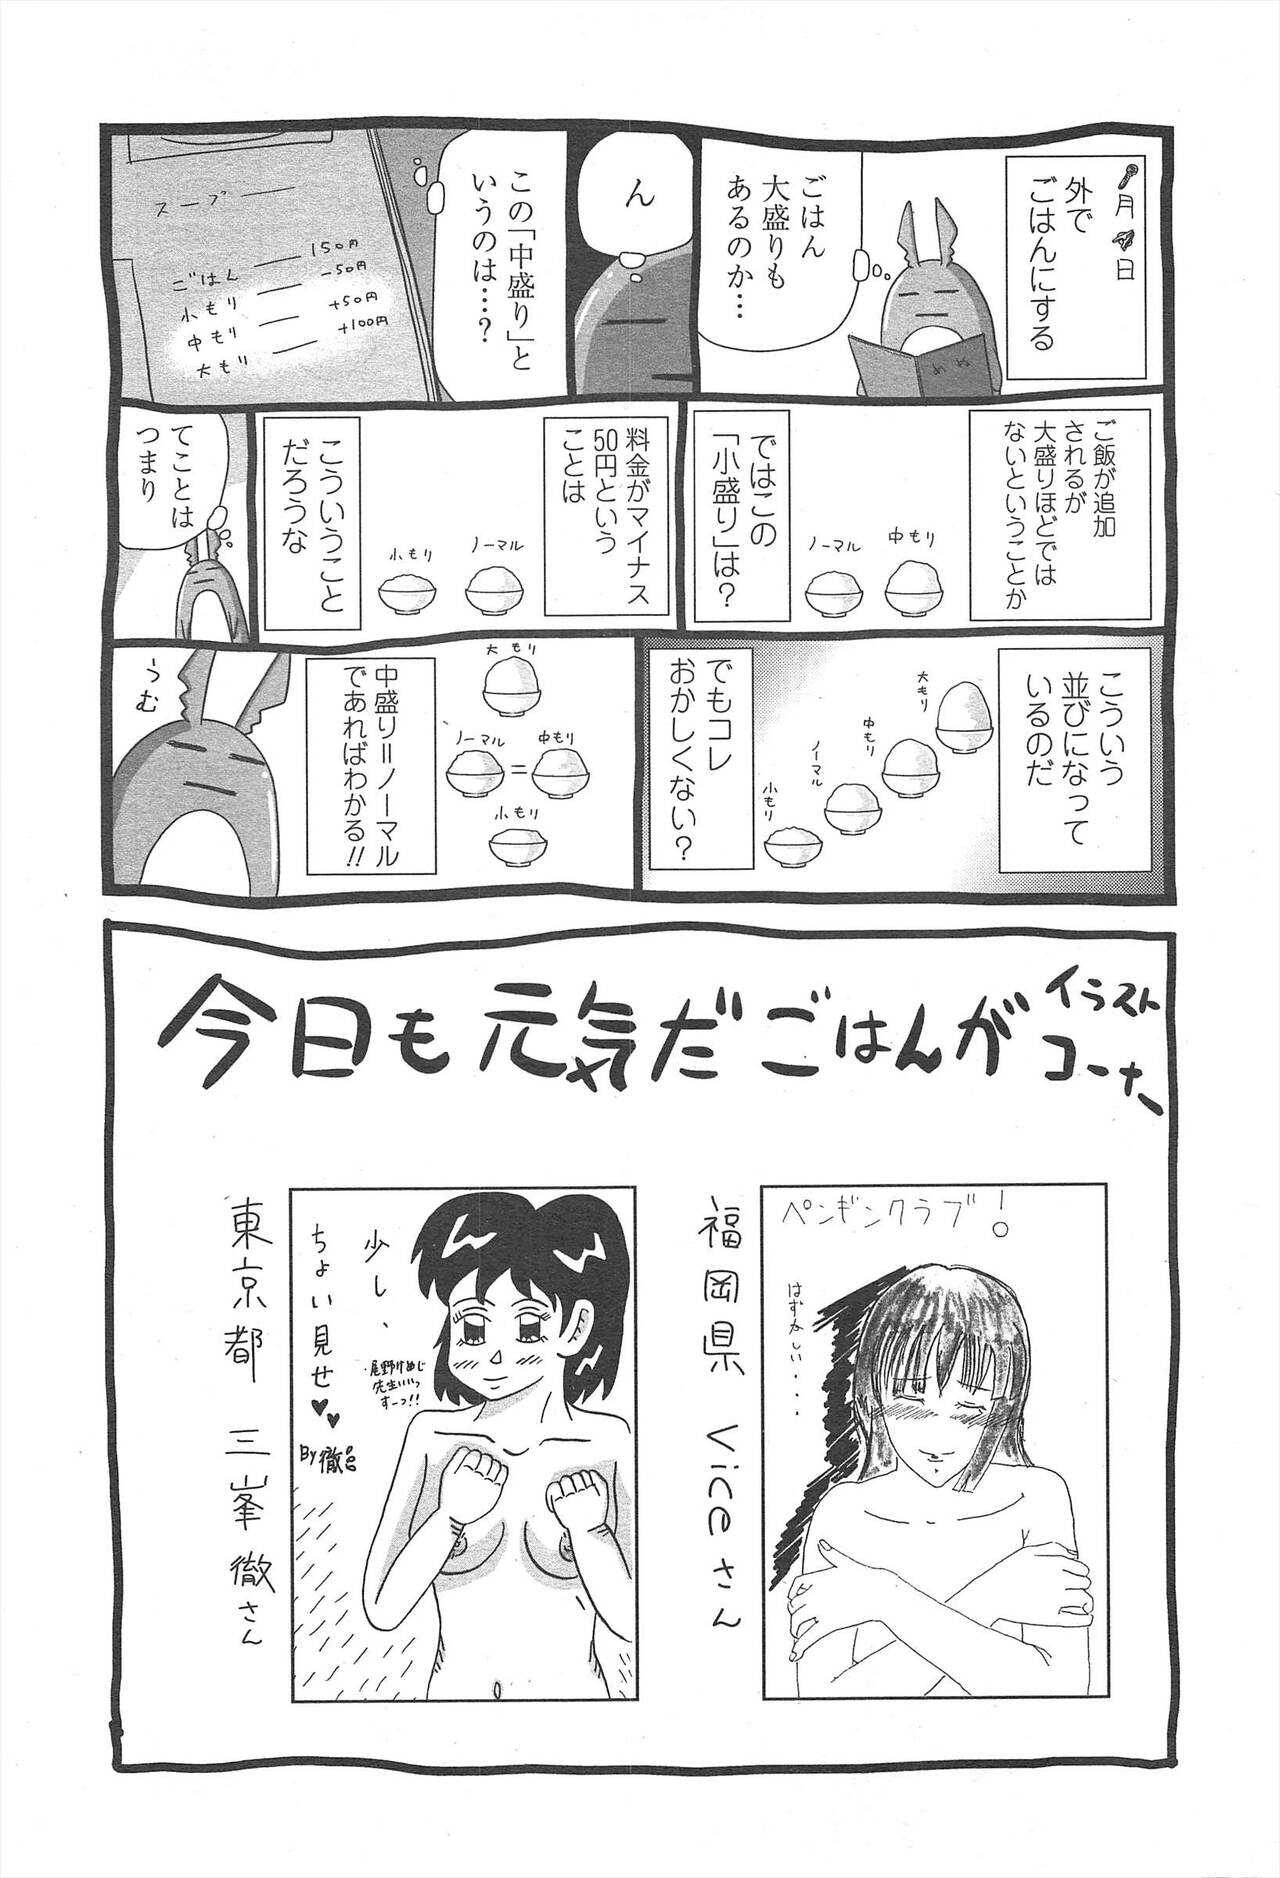 月 日
外で
ごはんにする
めぬ
ごはん
大盛りも
あるのか…
ん
この「中盛り」と
いうのは…?
スープ
ごはん 150円
小もり −50円
中もり +50円
大もり +100円
ご飯が追加
されるが
大盛りほどでは
ないということか
中もり
ノーマル
ではこの
「小盛り」は?
料金がマイナス
50円という
ことは
ノーマル
小もり
こういうこと
だろうな
てことは
つまり
こういう
並びになって
いるのだ
大もり
中もり
ノーマル
小もり
でもコレ
おかしくない?
大もり
ノーマル = 中もり
小もり
中盛り=ノーマル
であればわかる!!
うむ
今日も元気だごはんが
イラスト
コーナー
ペンギンクラブ!
はずかしい・・・・
福岡県 Viceさん
少し、
ちょい見せ♥♥
尾野けぬじ
先生いいっ
すーっ!!
By 徹
東京都 三峯徹さん